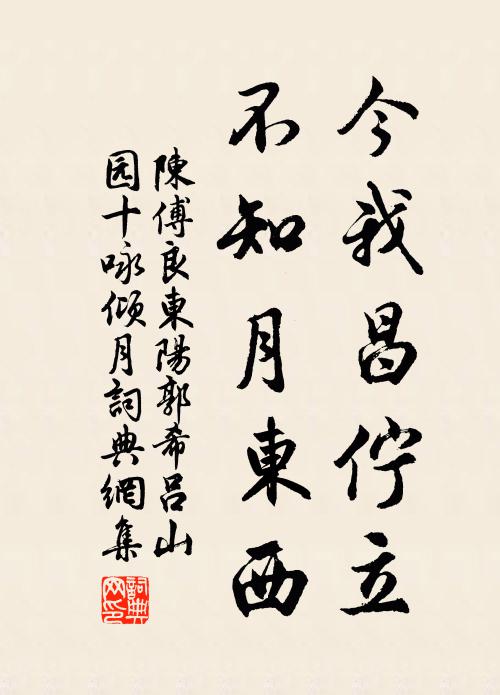 今我昌佇立
不知月東西
陳傅良東陽郭希呂山
园十咏倾月詞典網集
詞典网印